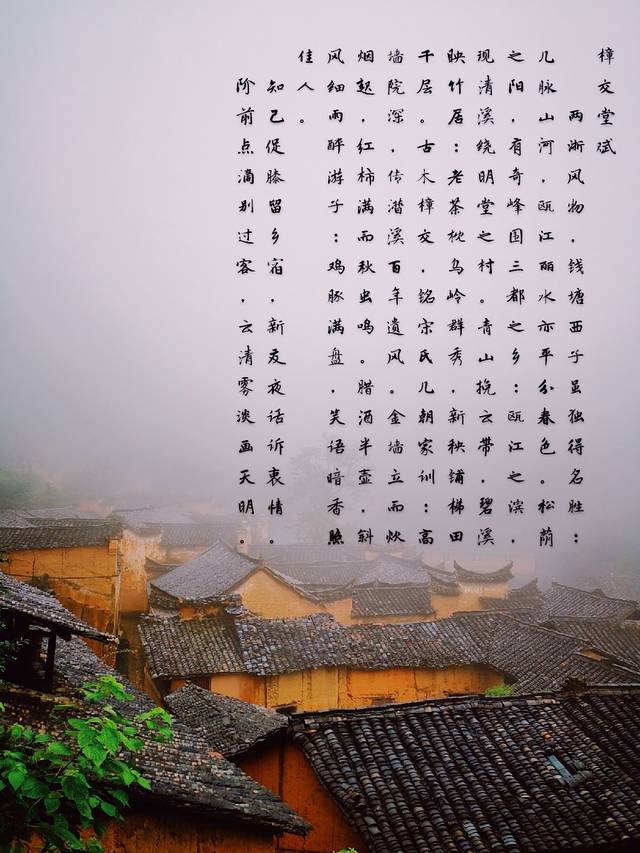 樟交堂赋
两浙风物，钱塘西子虽独得名胜；
几脉山河，瓯江丽水亦平分春色。松荫
之阳，有奇峰围三都之乡；瓯江之滨，
现清溪绕明堂之村。青山挽云带，碧溪
映竹居；老茶枕乌岭群秀，新秧铺梯田
千层。古木樟交，铭宋氏几朝家训；高
墙院深，传潜溪百年遗风。金墙立而炊
烟起，红柿满而秋虫鸣。腊酒半壶，斜
风细雨醉游子；鸡豚满盘，笑语暗香照
佳人。
知己促膝留乡宿，新友夜话诉衷情。
阶前点滴别过客，云清雾淡画天明。